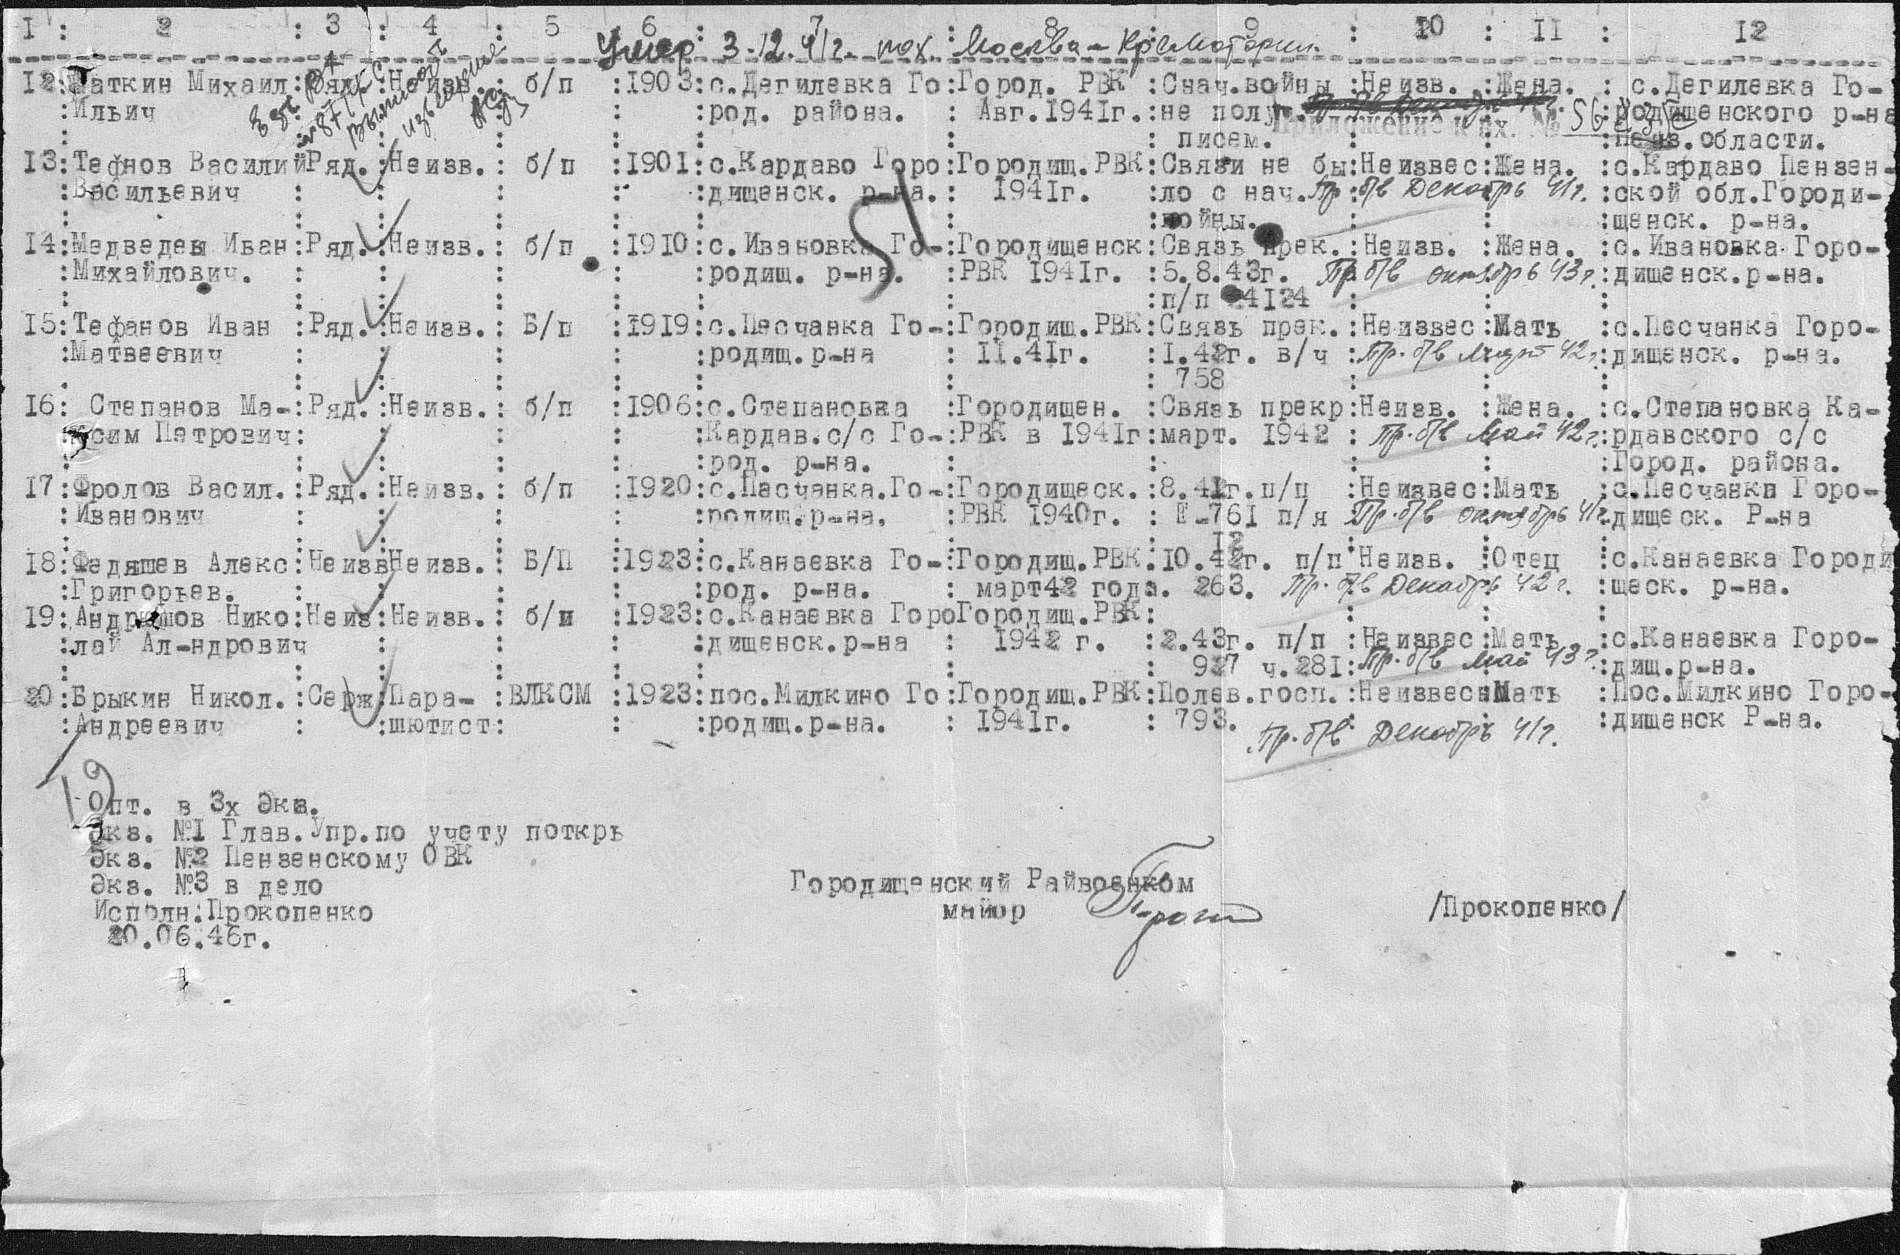 I : 2 : 3 : 4 : 5 : 6 : 7 : 8 : 9 : 10 : 11 : 12
Умер 3.12.41г. пох. Москва - Крематорий
12: Фаткин Михаил: Ряд.: Неизв.: б/п :1903:с.Дегилевка Го:Город. РВК :Снач.войны :Неизв. :Жена. : с.Дегилевка Го-
:Ильич : род. района. : Авг.1941г.:не полу Приложение к вх. № 56 :родищенского р-на
: писем. :Пенз.области.
13:Тефнов Василий:Ряд.:Неизв.: б/п :1901:с.Кардаво Горо:Городищ.РВК:Связи не бы:Неизвес:Жена. :с.Кардаво Пензен-
:Васильевич :дищенск. р-на.: 1941г. :ло с нач. Пр. б/в Декабрь 41г. :ской обл.Городи-
:войны. :щенск. р-на.
14:Медведев Иван :Ряд.:Неизв.: б/п :1910:с.Ивановка Го-:Городищенск:Связь прек.:Неизв. :Жена. :с.Ивановка Горо-
:Михайлович. :родищ. р-на. :РВК 1941г. :5.8.43г. Пр. б/в октябрь 43г. :дищенск.р-на.
:п/п 24124
15:Тефанов Иван :Ряд.:Неизв.: Б/п :1919:с.Песчанка Го-:Городищ.РВК:Связь прек.:Неизвес:Мать :с.Песчанка Горо-
:Матвеевич :родищ.р-на : 11.41г. :1.42г. в/ч :Пр. б/в Март 42г. :дищенск. р-на.
: 758
16: Степанов Ма-:Ряд.:Неизв.: б/п :1906:с.Степановка :Городищен. :Связь прекр:Неизв. :Жена. :с.Степановка Ка-
:ксим Петрович: :Кардав.с/с Го-:РВК в 1941г:март. 1942 : Пр. б/в Май 42г. :рдавского с/с
:род. р-на. :Город. района.
17:Фролов Васил. :Ряд.:Неизв.: б/п :1920:с.Песчанка.Го-:Городищеск.:8.41г.п/п :Неизвес:Мать :с.Песчанки Горо-
:Иванович :родищ.р-на. :РВК 1940г. : П-761 п/я Пр. б/в октябрь 41г. :дищеск. Р-на
12
18:Федяшев Алекс:Неизв:Неизв.: Б/П :1923:с.Канаевка Го-:Городищ.РВК:10.42г. п/п :Неизв. :Отец :с.Канаевка Городи
:Григорьев. :род. р-на. : март42 года. 263. Пр. б/в Декабрь 42г. :щеск. р-на.
19:Андрюшов Нико:Неиз:Неизв.: б/п :1923:с.Канаевка Горо Городищ.РВК:
:лай Ал-ндрович :дищенск.р-на : 1942 г. :2.43г. п/п :Неизвес:Мать :с.Канаевка Горо-
: 927 ч.281: Пр. б/в май 43г. :дищ.р-на.
20:Брыкин Никол. :Серж:Пара- :ВЛКСМ :1923:пос.Милкино Го:Городищ.РВК:Полев.госп. :Неизвесн:Мать :Пос.Милкино Горо-
:Андреевич : :шютист: :родищ.р-на. : 1941г. : 793. Пр. б/в Декабрь 41г. :дищенск Р-на.
19
Опт. в 3х Экз.
Экз. №1 Глав.Упр.по учету поткрь
Экз. №2 Пензенскому ОВК
Экз. №3 в дело
Городищенский Райвоенком
Исполн:Прокопенко
майор /Прокопенко/
20.06.46г.